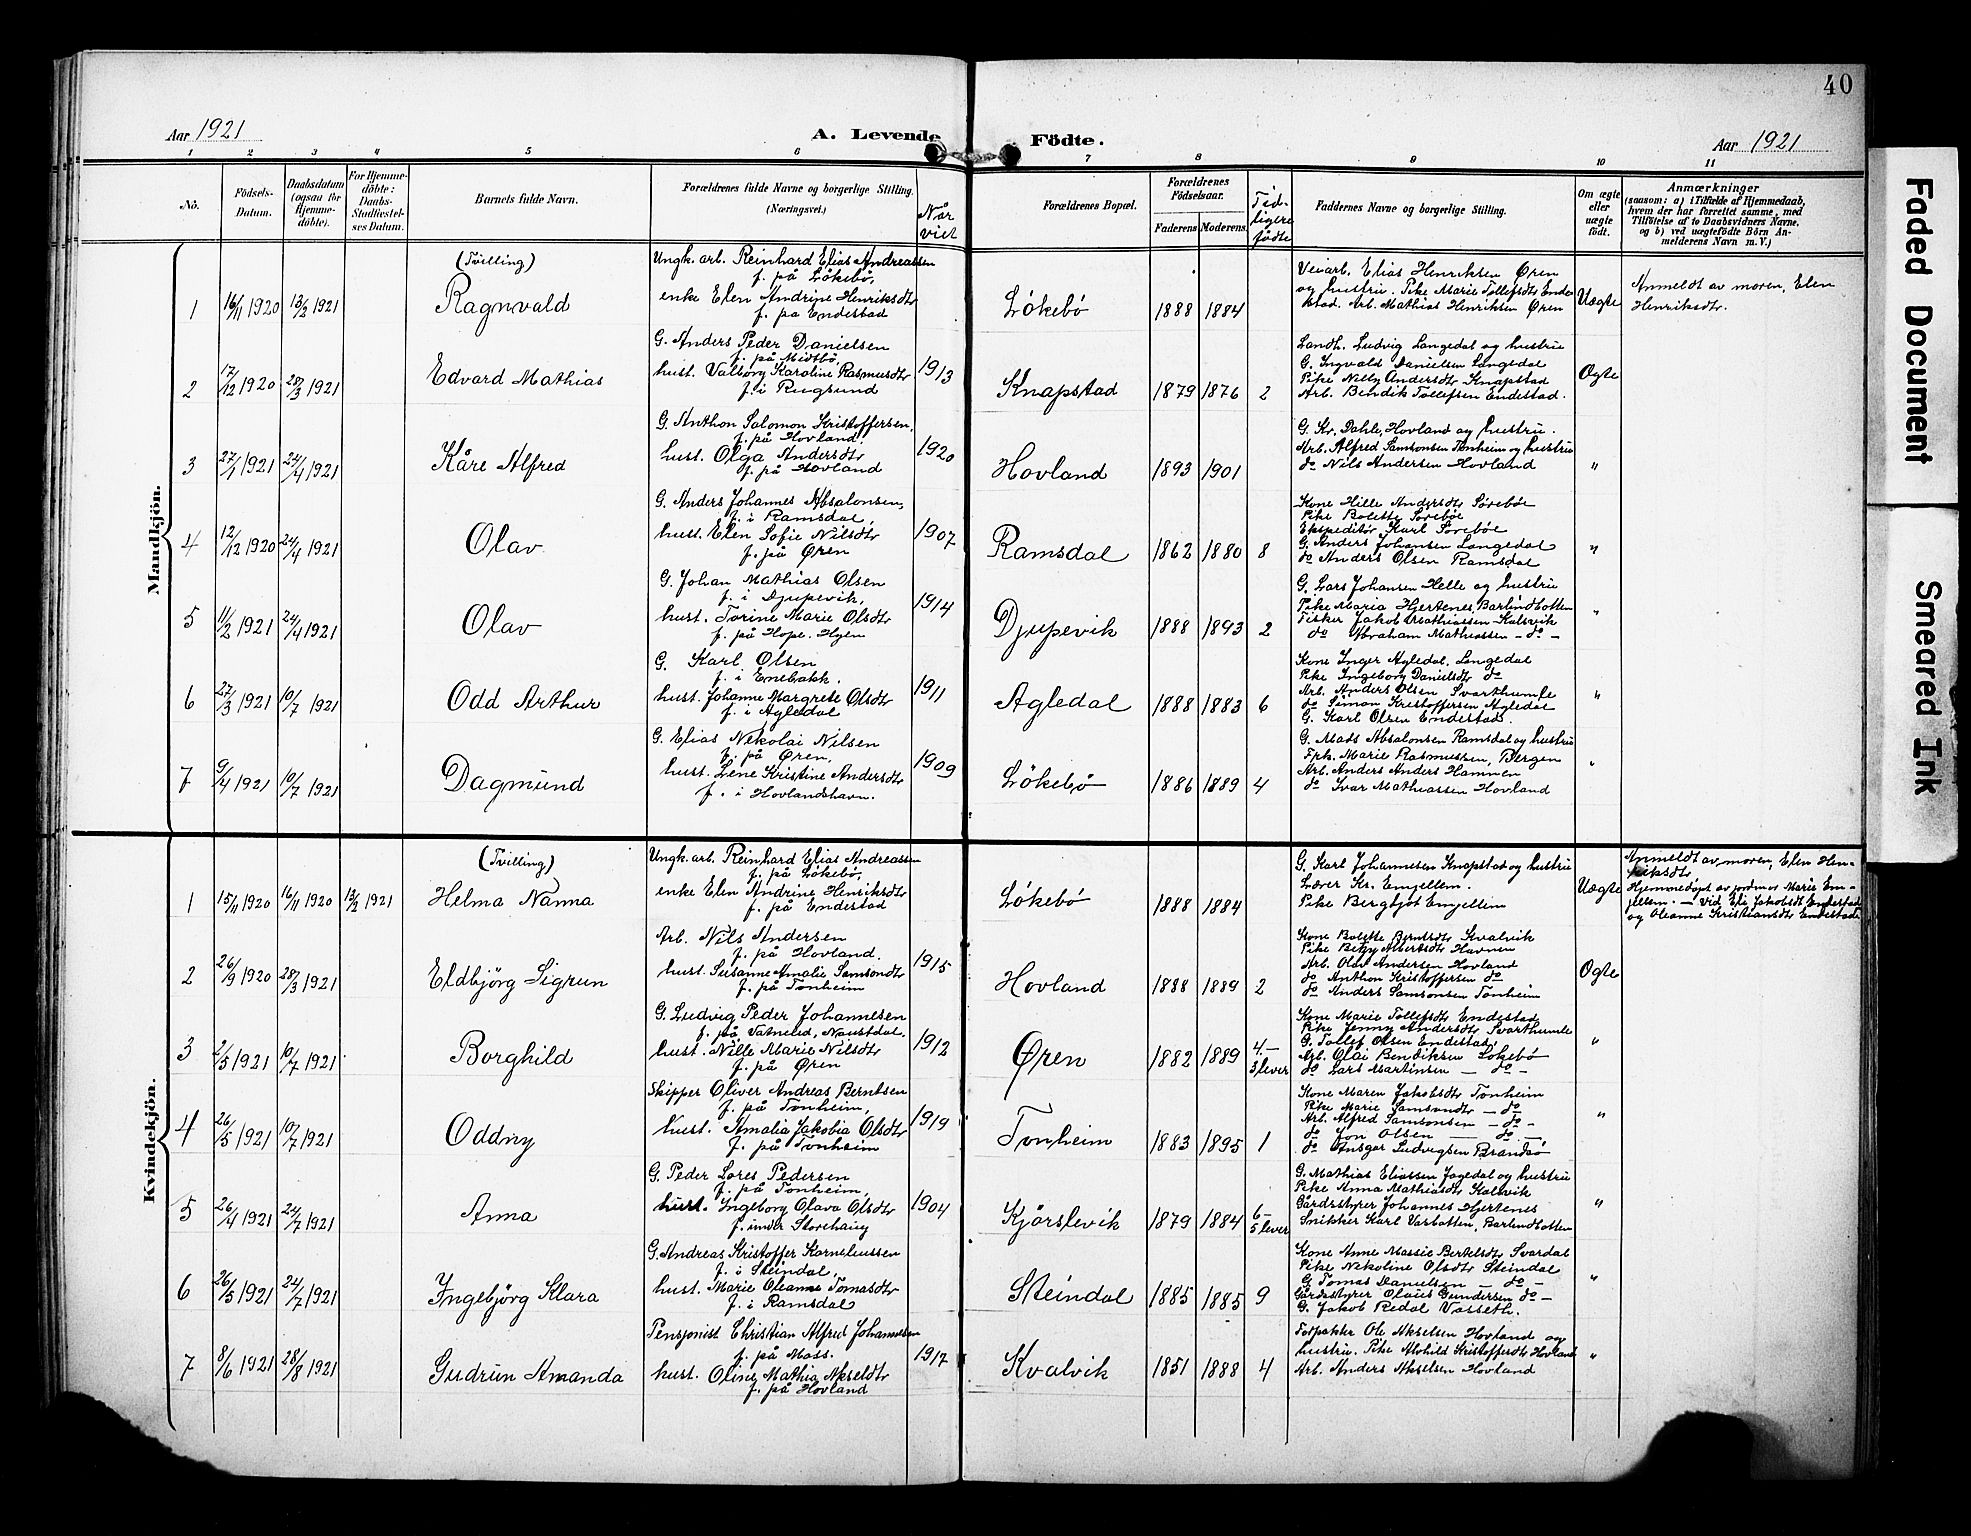 40
Aar 1921
A. Levende Födte.
Aar 1921
1 2 3 4 5 6 7 8 9 10 11
Nô.
Födsels-Datum.
Daabsdatum (ogsaa for Hjemme-döbte).
For Hjemme-döbte: Daabs-Stadfæstel-ses Datum.
Barnets fulde Navn.
Forældrenes fulde Navne og borgerlige Stilling.
(Næringsvei.)
Når viet
Forældrenes Bopæl.
Forældrenes Födselsaar.
Faderens Moderens.
Tid-ligere födte
Faddernes Navne og borgerlige Stilling.
Om ægte eller uægte födt.
Anmærkninger
(saasom: a) i Tilfælde af Hjemmedaab,
hvem der har forrettet samme, med
Tilföielse af to Daabsvidners Navne,
og b) ved uægtefödte Börn An-
melderens Navn m. V.)
Mandkjön.
1 16/11 1920 13/2 1921
(Tvilling)
Ragnvald
Ungk. arb. Reinhard Elias Andreassen
f. på Lökebö,
enke Elen Andrine Henriksdtr
f. på Endestad
Lökebö 1888 1884
Veiarb. Elias Henriksen Øren
og hustru. Pike Marie Tollefsdtr Ende
stad. Arb. Mathias Henriksen Øren
Uægte
Anmeldt av moren, Elen
Henriksdtr.
2 17/12 1920 28/3 1921
Edvard Mathias
G. Anders Peder Danielsen
f. på Midtbö,
hust. Valborg Karoline Rasmusdtr
f. i Rugsund
1913
Knapstad 1879 1876 2
Landh. Ludvig Langedal og hustru
G. Ingvald Danielsen Langedal
Pike Nilly Andersdtr Knapstad
Arb. Bendik Tollefsen Endestad.
Ægte
3 27/1 1921 24/4 1921
Kåre Alfred
G. Anthon Salomon Kristoffersen,
f. på Hovland.
hust. Olga Andersdtr
f. på Hovland
1920
Hovland 1893 1901
G. Kr. Dahle, Hovland og hustru.
Arb. Alfred Samsonsen Tonheim og hustru
do Nils Andersen Hovland
"
4 12/12 1920 24/4 1921
Olav
G. Anders Johannes Absalonsen,
f. i Ramsdal,
hust. Elen Sofie Nilsdtr
f. på Øren
1907
Ramsdal 1862 1880 8
Kone Hille Andersdtr Sörebøe
Pike Bolette Sörebøe
Ekspeditör Karl Sörebøe
G. Anders Johansen Langedal
do Anders Olsen Ramsdal
"
5 11/2 1921 24/4 1921
Olav
G. Johan Mathias Olsen
f. i Djupevik,
hust. Torine Marie Olsdtr
f. på Hope. Hyen
1914
Djupevik 1888 1893 2
G. Lars Johansen Helle og hustru
Pike Maria Hjertenes, Barlindbotten
Fisker Jakob Mathiassen Kalsvik
do Abraham Mathiassen - do -
"
6 27/3 1921 10/7 1921
Odd Arthur
G. Karl Olsen
f. i Enebakk.
hust. Johanne Margrete Olsdtr
f. i Agledal
1911
Agledal 1888 1883 6
Kone Inger Agledal, Langedal
Pike Ingeborg Danielsdtr do
Arb. Anders Olsen Svarthumle
do Simon Kristoffersen Agledal
G. Karl Olsen Endestad.
"
7 9/4 1921 10/7 1921
Dagmund
G. Elias Nekolai Nilsen
f. på Øren,
hust. Lene Kristine Andersdtr
f. i Hovlandshavn.
1909
Lökebö 1886 1889 4
G. Mads Absalonsen Ramsdal og hustru
Frk. Marie Rasmussen, Bergen
Arb. Anders Anders Hamnen
do Ivar Mathiassen Hovland
"
Kvindekjön.
1 15/11 1920 16/11 1920 13/2 1921
(Tvilling)
Helma Nanna
Ungk. arb. Reinhard Elias Andreassen
f. på Lökebö,
enke Elen Andrine Henriksdtr
f. på Endestad
Lökebö 1888 1884
G. Karl Johannesen Knapstad og hustru
Lærer Kr. Emjellem.
Pike Bergljot Emjellem
Uægte
Anmeldt av moren, Elen Hen-
riksdtr
Hjemmedöpt av jordmor Marie Em-
jellem. - Vid Eli Jakobsdt Endestad
og Oleanne Kristiansdtr Endestad
2 26/9 1920 28/3 1921
Eldbjörg Sigrun
Arb. Nils Andersen
f. på Hovland.
hust. Susanne Amalie Samsondtr
f. på Tonheim
1915
Hovland 1888 1889 2
Kone Bolette Berntsdtr Kvalvik
Pike Betzy Albertsdtr Havnen
Arb. Olav Andersen Hovland
do Anthon Kristoffersen do
do Anders Samsonsen Tonheim
Ægte
3 2/5 1921 10/7 1921
Borghild
G. Ludvig Peder Johannesen
f. på Vatneled, Naustdal.
hust. Nille Marie Nilsdtr
f. på Øren
1912
Øren 1882 1889 4- 3 lever
Kone Marie Tollefsdtr Endestad
Pike Jenny Andersdtr Svarthumle
G. Tollef Olsen Endestad,
Arb. Olai Bendiksen Lökebö
do Lars Martinsen - do -
"
4 26/5 1921 10/7 1921
Oddny
Skipper Oliver Andreas Berntsen
f. på Tonheim,
hust. Amalia Jakobia Olsdtr
f. på Tonheim
1919
Tonheim 1883 1895 1
Kone Maren Jakobsdtr Tonheim
Pike Marie Samsondtr - do
Arb. Alfred Samsonsen - do -
do Jon Olsen - do -
do Ansgar Ludvigsen Brandsö
"
5 26/4 1921 24/7 1921
Anna
G. Peder Lores Pedersen
f. på Tonheim,
hust. Ingeborg Olava Olsdtr
f. under Storehaug
1904
Kjörslevik 1879 1884 6- 5 lever
G. Mathias Eliassen Fagedal og hustru
Pike Anna Mathiasdtr Kalsvik
Gårdsstyrer Johannes Hjertenes
Snikker Karl Vasbotten, Barlindbotten
"
6 26/5 1921 24/7 1921
Ingebjörg Klara
G. Andreas Kristoffer Korneliussen
f. i Steindal,
hust. Marie Oleanne Tomasdtr
f. i Ramsdal
Steindal 1885 1885 9
Kone Anne Massie Bertelsdtr Svardal
Pike Nekoline Olsdtr Steindal
G. Tomas Danielsen - do -
Gårdsstyrer Olaus Gundersen do -
G. Jakob Redal Vasseth.
"
7 8/6 1921 28/8 1921
Gudrun Amanda
Pensjonist Christian Alfred Johannesen
f. på Moss.
hust. Oline Mathia Akseldtr
f. på Hovland
1917
Kvalvik 1851 1888 4
Fotpakter Ole Akselsen Hovland og
hustru. Pike Alvhild Kristoffersdtr Hovland
Arb. Anders Akselsen Hovland
"
Faded Document
Smeared Ink